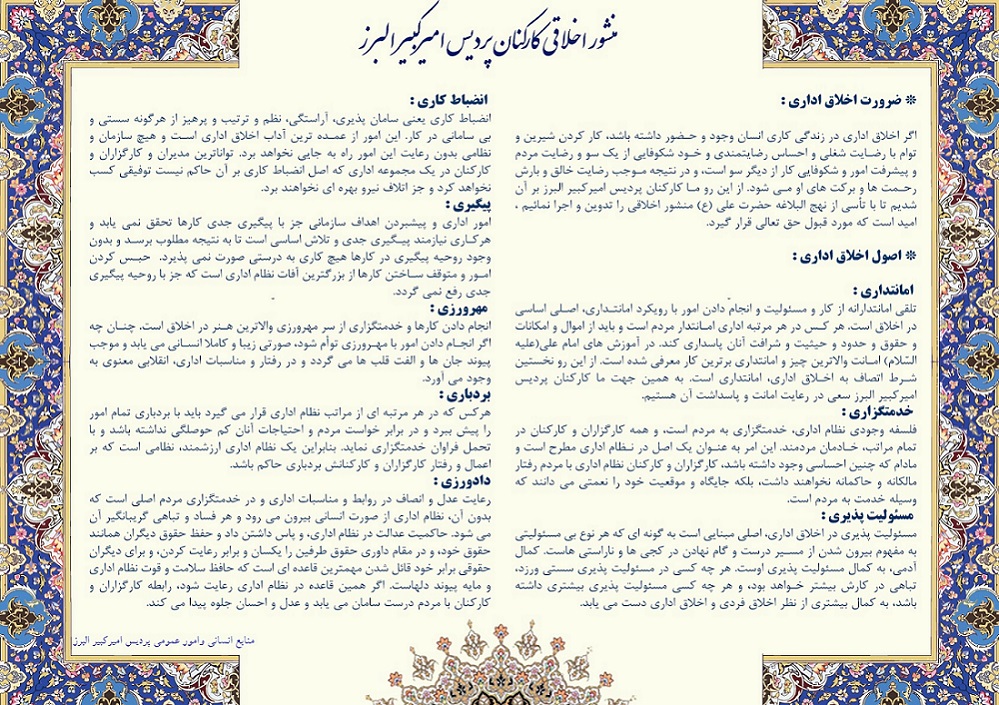 منشور اخلاقی کارکنان پردیس امیرکبیر البرز
* ضرورت اخلاق اداری :
اگر اخلاق اداری در زندگی کاری انسان وجود و حضور داشته باشد، کار کردن شیرین و
توام با رضایت شغلی و احساس رضایتمندی و خود شکوفایی از یک سو و رضایت مردم
و پیشرفت امور و شکوفایی کار از دیگر سو است، و در نتیجه موجب رضایت خالق و بارش
رحمت ها و برکت های او می شود. از این رو ما کارکنان پردیس امیرکبیر البرز بر آن
شدیم تا با تأسی از نهج البلاغه حضرت علی (ع) منشور اخلاقی را تدوین و اجرا نمائیم ،
امید است که مورد قبول حق تعالی قرار گیرد.
* اصول اخلاق اداری :
امانتداری :
تلقی امانتدارانه از کار و مسئولیت و انجام دادن امور با رویکرد امانتداری، اصلی اساسی
در اخلاق است. هر کس در هر مرتبه اداری امانتدار مردم است و باید از اموال و امکانات
و حقوق و حدود و حیثیت و شرافت آنان پاسداری کند. در آموزش های امام علی(علیه
السّلام) امانت والاترین چیز و امانتداری برترین کار معرفی شده است. از این رو نخستین
شرط اتصاف به اخلاق اداری، امانتداری است. به همین جهت ما کارکنان پردیس
امیرکبیر البرز سعی در رعایت امانت و پاسداشت آن هستیم.
خدمتگزاری :
فلسفه وجودی نظام اداری، خدمتگزاری به مردم است، و همه کارگزاران و کارکنان در
تمام مراتب، خادمان مردمند. این امر به عنوان یک اصل در نظام اداری مطرح است و
مادام که چنین احساسی وجود داشته باشد، کارگزاران و کارکنان نظام اداری با مردم رفتار
مالکانه و حاکمانه نخواهند داشت، بلکه جایگاه و موقعیت خود را نعمتی می دانند که
وسیله خدمت به مردم است.
مسئولیت پذیری :
مسئولیت پذیری در اخلاق اداری، اصلی مبنایی است به گونه ای که هر نوع بی مسئولیتی
به مفهوم بیرون شدن از مسیر درست و گام نهادن در کجی ها و ناراستی هاست. کمال
آدمی، به کمال مسئولیت پذیری اوست. هر چه کسی در مسئولیت پذیری سستی ورزد،
تباهی در کارش بیشتر خواهد بود، و هر چه کسی مسئولیت پذیری بیشتری داشته
باشد، به کمال بیشتری از نظر اخلاق فردی و اخلاق اداری دست می یابد.
انضباط کاری :
انضباط کاری یعنی سامان پذیری، آراستگی، نظم و ترتیب و پرهیز از هرگونه سستی و
بی سامانی در کار. این امور از عمده ترین آداب اخلاق اداری است و هیچ سازمان و
نظامی بدون رعایت این امور راه به جایی نخواهد برد. تواناترین مدیران و کارگزاران و
کارکنان در یک مجموعه اداری که اصل انضباط کاری بر آن حاکم نیست توفیقی کسب
نخواهد کرد و جز اتلاف نیرو بهره ای نخواهند برد.
پیگیری :
امور اداری و پیشبردن اهداف سازمانی جز با پیگیری جدی کارها تحقق نمی یابد و
هرکاری نیازمند پیگیری جدی و تلاش اساسی است تا به نتیجه مطلوب برسد و بدون
وجود روحیه پیگیری در کارها هیچ کاری به درستی صورت نمی پذیرد. حبس کردن
امور و متوقف ساختن کارها از بزرگترین آفات نظام اداری است که جز با روحیه پیگیری
جدی رفع نمی گردد.
مهرورزی :
انجام دادن کارها و خدمتگزاری از سر مهرورزی والاترین هنر در اخلاق است. چنان چه
اگر انجام دادن امور با مهرورزی توأم شود، صورتی زیبا و کاملا انسانی می یابد و موجب
پیوند جان ها و الفت قلب ها می گردد و در رفتار و مناسبات اداری، انقلابی معنوی به
وجود می آورد.
بردباری :
هرکس که در هر مرتبه ای از مراتب نظام اداری قرار می گیرد باید با بردباری تمام امور
را پیش ببرد و در برابر خواست مردم و احتیاجات آنان کم حوصلگی نداشته باشد و با
تحمل فراوان خدمتگزاری نماید. بنابراین یک نظام اداری ارزشمند، نظامی است که بر
اعمال و رفتار کارگزاران و کارکنانش بردباری حاکم باشد.
دادورزی :
رعایت عدل و انصاف در روابط و مناسبات اداری و در خدمتگزاری مردم اصلی است که
بدون آن، نظام اداری از صورت انسانی بیرون می رود و هر فساد و تباهی گریبانگیر آن
می شود. حاکمیت عدالت در نظام اداری، و پاس داشتن داد و حفظ حقوق دیگران همانند
حقوق خود، و در مقام داوری حقوق طرفین را یکسان و برابر رعایت کردن، و برای دیگران
حقوقی برابر خود قائل شدن مهمترین قاعده ای است که حافظ سلامت و قوت نظام اداری
و مایه پیوند دلهاست. اگر همین قاعده در نظام اداری رعایت شود، رابطه کارگزاران و
کارکنان با مردم درست سامان می یابد و عدل و احسان جلوه پیدا می کند.
منابع انسانی وامور عمومی پردیس امیرکبیر البرز